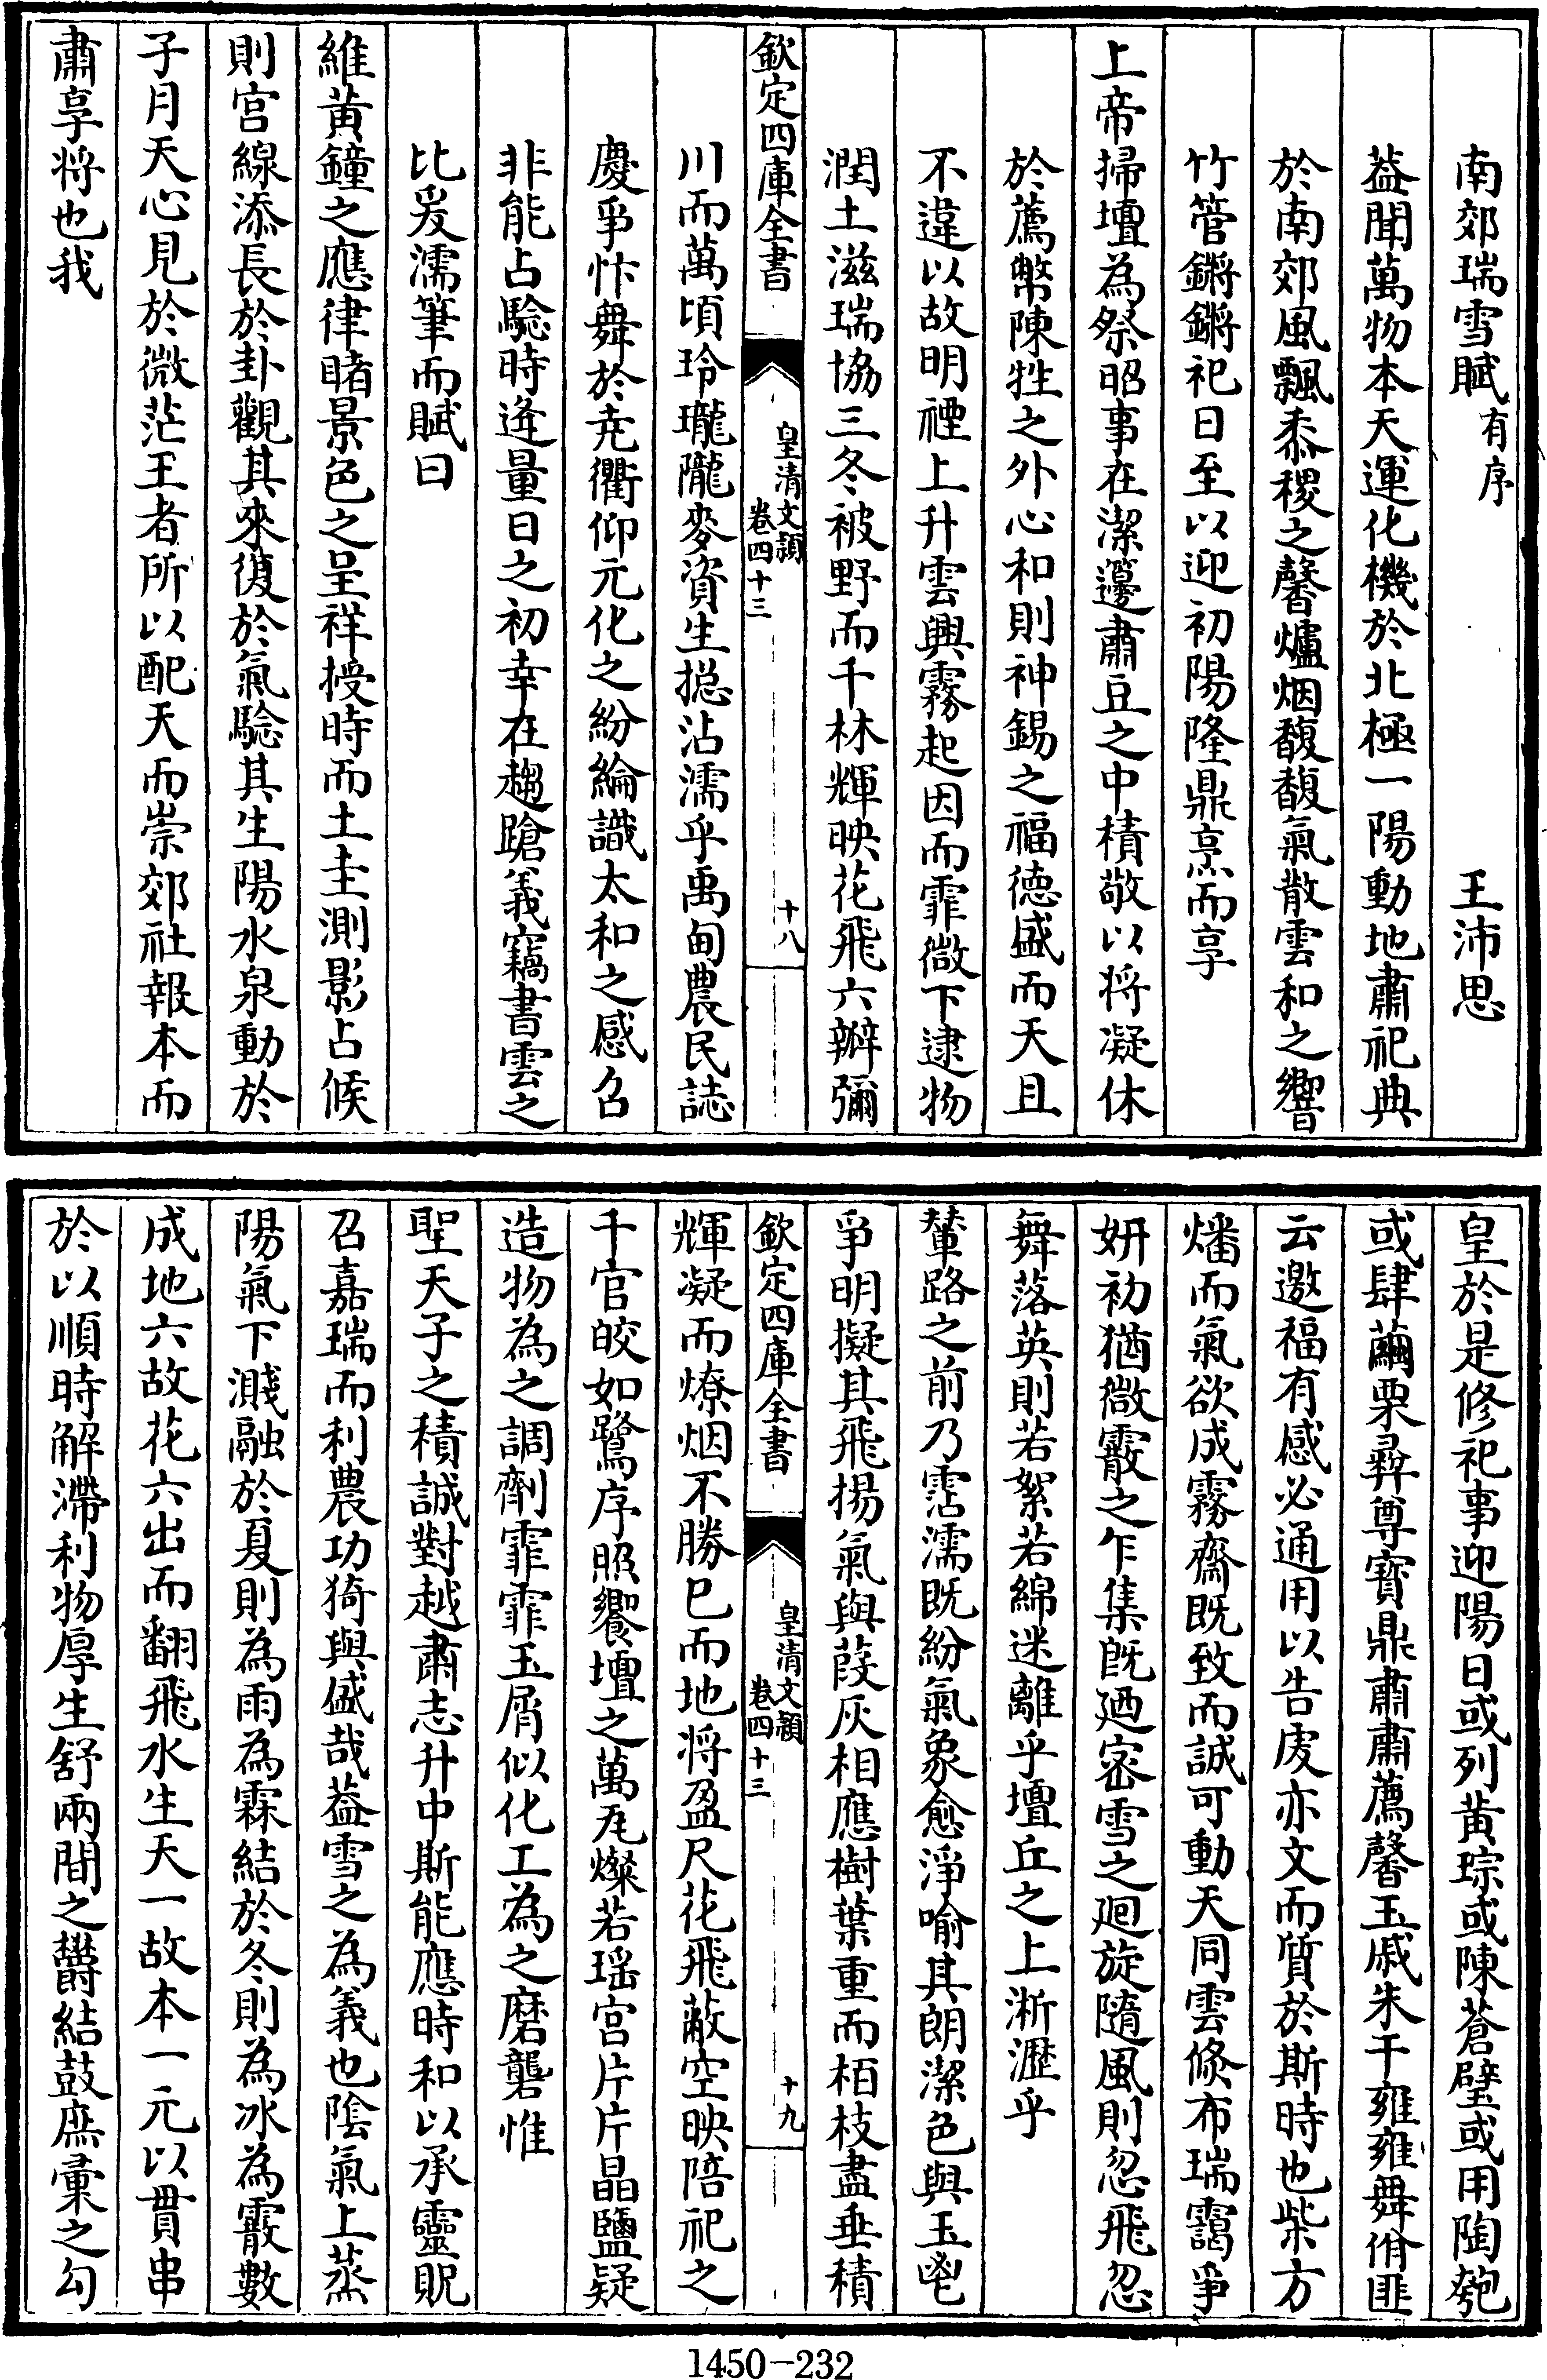 南郊瑞雪賦有序　王沛思
葢聞萬物本天運化機於北極一陽動地肅祀典
於南郊風飄黍稷之馨爐烟馥馥氣散雲和之響
竹管鏘鏘祀日至以迎初陽隆鼎烹而享
上帝掃壇為祭昭事在潔籩肅豆之中積敬以将凝休
於薦幣陳牲之外心和則神錫之福德盛而天且
不違以故明禋上升雲興霧起因而霏微下逮物
潤土滋瑞協三冬被野而千林輝映花飛六瓣彌
欽定四庫全書
皇清文穎
卷四十三
十八
川而萬頃玲瓏隴麥資生揔沾濡乎禹甸農民誌
慶爭忭舞於尭衢仰元化之紛綸識太和之感召
非能占驗時逄量日之初幸在趨蹌義竊書雲之
比爰濡筆而賦曰
維黃鐘之應律睹景色之呈祥授時而土圭測影占候
則宫線添長於卦觀其來復於氣驗其生陽水泉動於
子月天心見於微茫王者所以配天而崇郊社報本而
肅享将也我
皇於是修祀事迎陽日或列黃琮或陳蒼璧或用陶匏
或肆繭栗彛尊寳鼎肅肅薦馨玉戚朱干雍雍舞佾匪
云邀福有感必通用以告虔亦文而質於斯時也柴方
燔而氣欲成霧齋既致而誠可動天同雲倐布瑞靄爭
妍初猶微霰之乍集旣廼宻雪之廻旋隨風則忽飛忽
舞落英則若絮若綿迷離乎壇丘之上淅瀝乎
輦路之前乃霑濡既紛氣象愈淨喻其朗潔色與玉鬯
爭明擬其飛揚氣與葭灰相應樹葉重而栢枝盡垂積
欽定四庫全書
皇清文穎
卷四十三
十九
輝凝而燎烟不勝已而地将盈尺花飛蔽空映陪祀之
千官皎如鷺序照饗壇之萬瓦燦若瑶宫片片晶鹽疑
造物為之調劑霏霏玉屑似化工為之磨礱惟
聖天子之積誠對越肅志升中斯能應時和以承靈貺
召嘉瑞而利農功猗與盛哉葢雪之為義也隂氣上蒸
陽氣下濺融於夏則為雨為霖結於冬則為冰為霰數
成地六故花六出而翻飛水生天一故本一元以貫串
於以順時解滯利物厚生舒兩間之欝結鼓庶彚之勾
1450-232